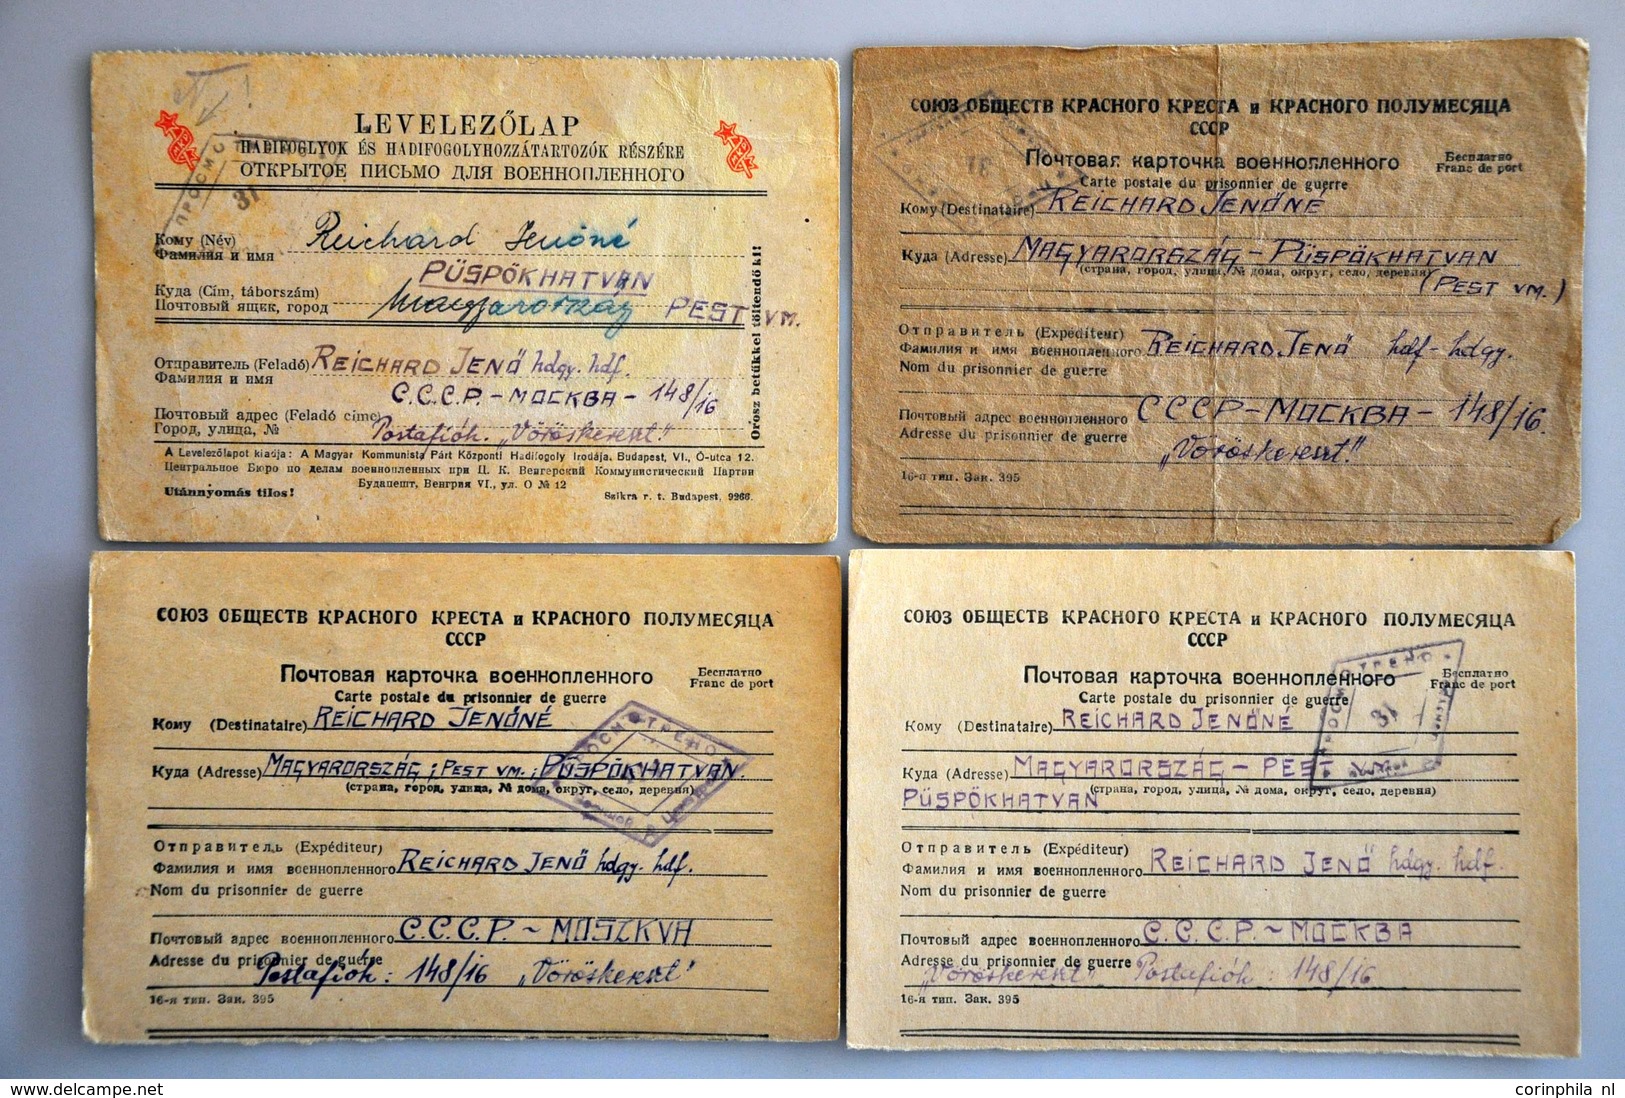 LEVELEZŐLAP
HADIFOGLYOK ÉS HADIFOGOLYHOZZÁTARTOZÓK RÉSZÉRE
ОТКРЫТОЕ ПИСЬМО ДЛЯ ВОЕННОПЛЕННОГО
ПРОСМОТР
31
Кому (Név) Reichard Jenőné
Фамилия и имя
PÜSPÖKHATVAN
Куда (Cím, táborszám)
Почтовый ящик, город Magyarország PEST VM.
Отправитель (Feladó) REICHARD JENŐ hdgy. hdf.
Фамилия и имя
C.C.C.P. - MOCKBA - 148/16
Почтовый адрес (Feladó címe)
Город, улица, № Postafiók. „Vöröskereszt!"
Orosz betűkkel töltendő ki!
A Levelezőlapot kiadja: A Magyar Kommunista Párt Központi Hadifogoly Irodája, Budapest, VI., Ó-utca 12.
Центральное Бюро по делам военнопленных при Ц. К. Венгерский Коммунистический Партии
Будапешт, Венгрия VI., ул. О № 12
Utánnyomás tilos!
Szikra r. t. Budapest, 9266.
СОЮЗ ОБЩЕСТВ КРАСНОГО КРЕСТА и КРАСНОГО ПОЛУМЕСЯЦА
СССР
Почтовая карточка военнопленного
Бесплатно
Carte postale du prisonnier de guerre
Franc de port
Кому (Destinataire) REICHARD JENŐNÉ
Куда (Adresse) MAGYARORSZÁG - PÜSPÖKHATVAN
(страна, город, улица, № дома, округ, село, деревня)
(PEST VM.)
Отправитель (Expéditeur)
Фамилия и имя военнопленного REICHARD JENŐ hdf - hdgy.
Nom du prisonnier de guerre
Почтовый адрес военнопленного CCCP - MOCKBA - 148/16.
Adresse du prisonnier de guerre
„Vöröskereszt!"
16-я тип. Зак. 395
СОЮЗ ОБЩЕСТВ КРАСНОГО КРЕСТА и КРАСНОГО ПОЛУМЕСЯЦА
СССР
Почтовая карточка военнопленного
Бесплатно
Carte postale du prisonnier de guerre
Franc de port
Кому (Destinataire) REICHARD JENŐNÉ
Куда (Adresse) MAGYARORSZÁG; PEST VM.; PÜSPÖKHATVAN.
(страна, город, улица, № дома, округ, село, деревня)
Отправитель (Expéditeur)
Фамилия и имя военнопленного REICHARD JENŐ hdgy. hdf.
Nom du prisonnier de guerre
Почтовый адрес военнопленного C.C.C.P. ~ MOSZKVA
Adresse du prisonnier de guerre
Postafiók: 148/16 „Vöröskereszt"
16-я тип. Зак. 395
СОЮЗ ОБЩЕСТВ КРАСНОГО КРЕСТА и КРАСНОГО ПОЛУМЕСЯЦА
СССР
Почтовая карточка военнопленного
Бесплатно
Carte postale du prisonnier de guerre
Franc de port
ПРОСМОТРЕНО
31
Кому (Destinataire) REICHARD JENŐNÉ
Куда (Adresse) MAGYARORSZÁG - PEST VM.
(страна, город, улица, № дома, округ, село, деревня)
PÜSPÖKHATVAN
Отправитель (Expéditeur)
Фамилия и имя военнопленного REICHARD JENŐ hdgy. hdf.
Nom du prisonnier de guerre
Почтовый адрес военнопленного C.C.C.P. ~ MOCKBA
Adresse du prisonnier de guerre
„Vöröskereszt" Postafiók: 148/16
16-я тип. Зак. 395
corinphila nl